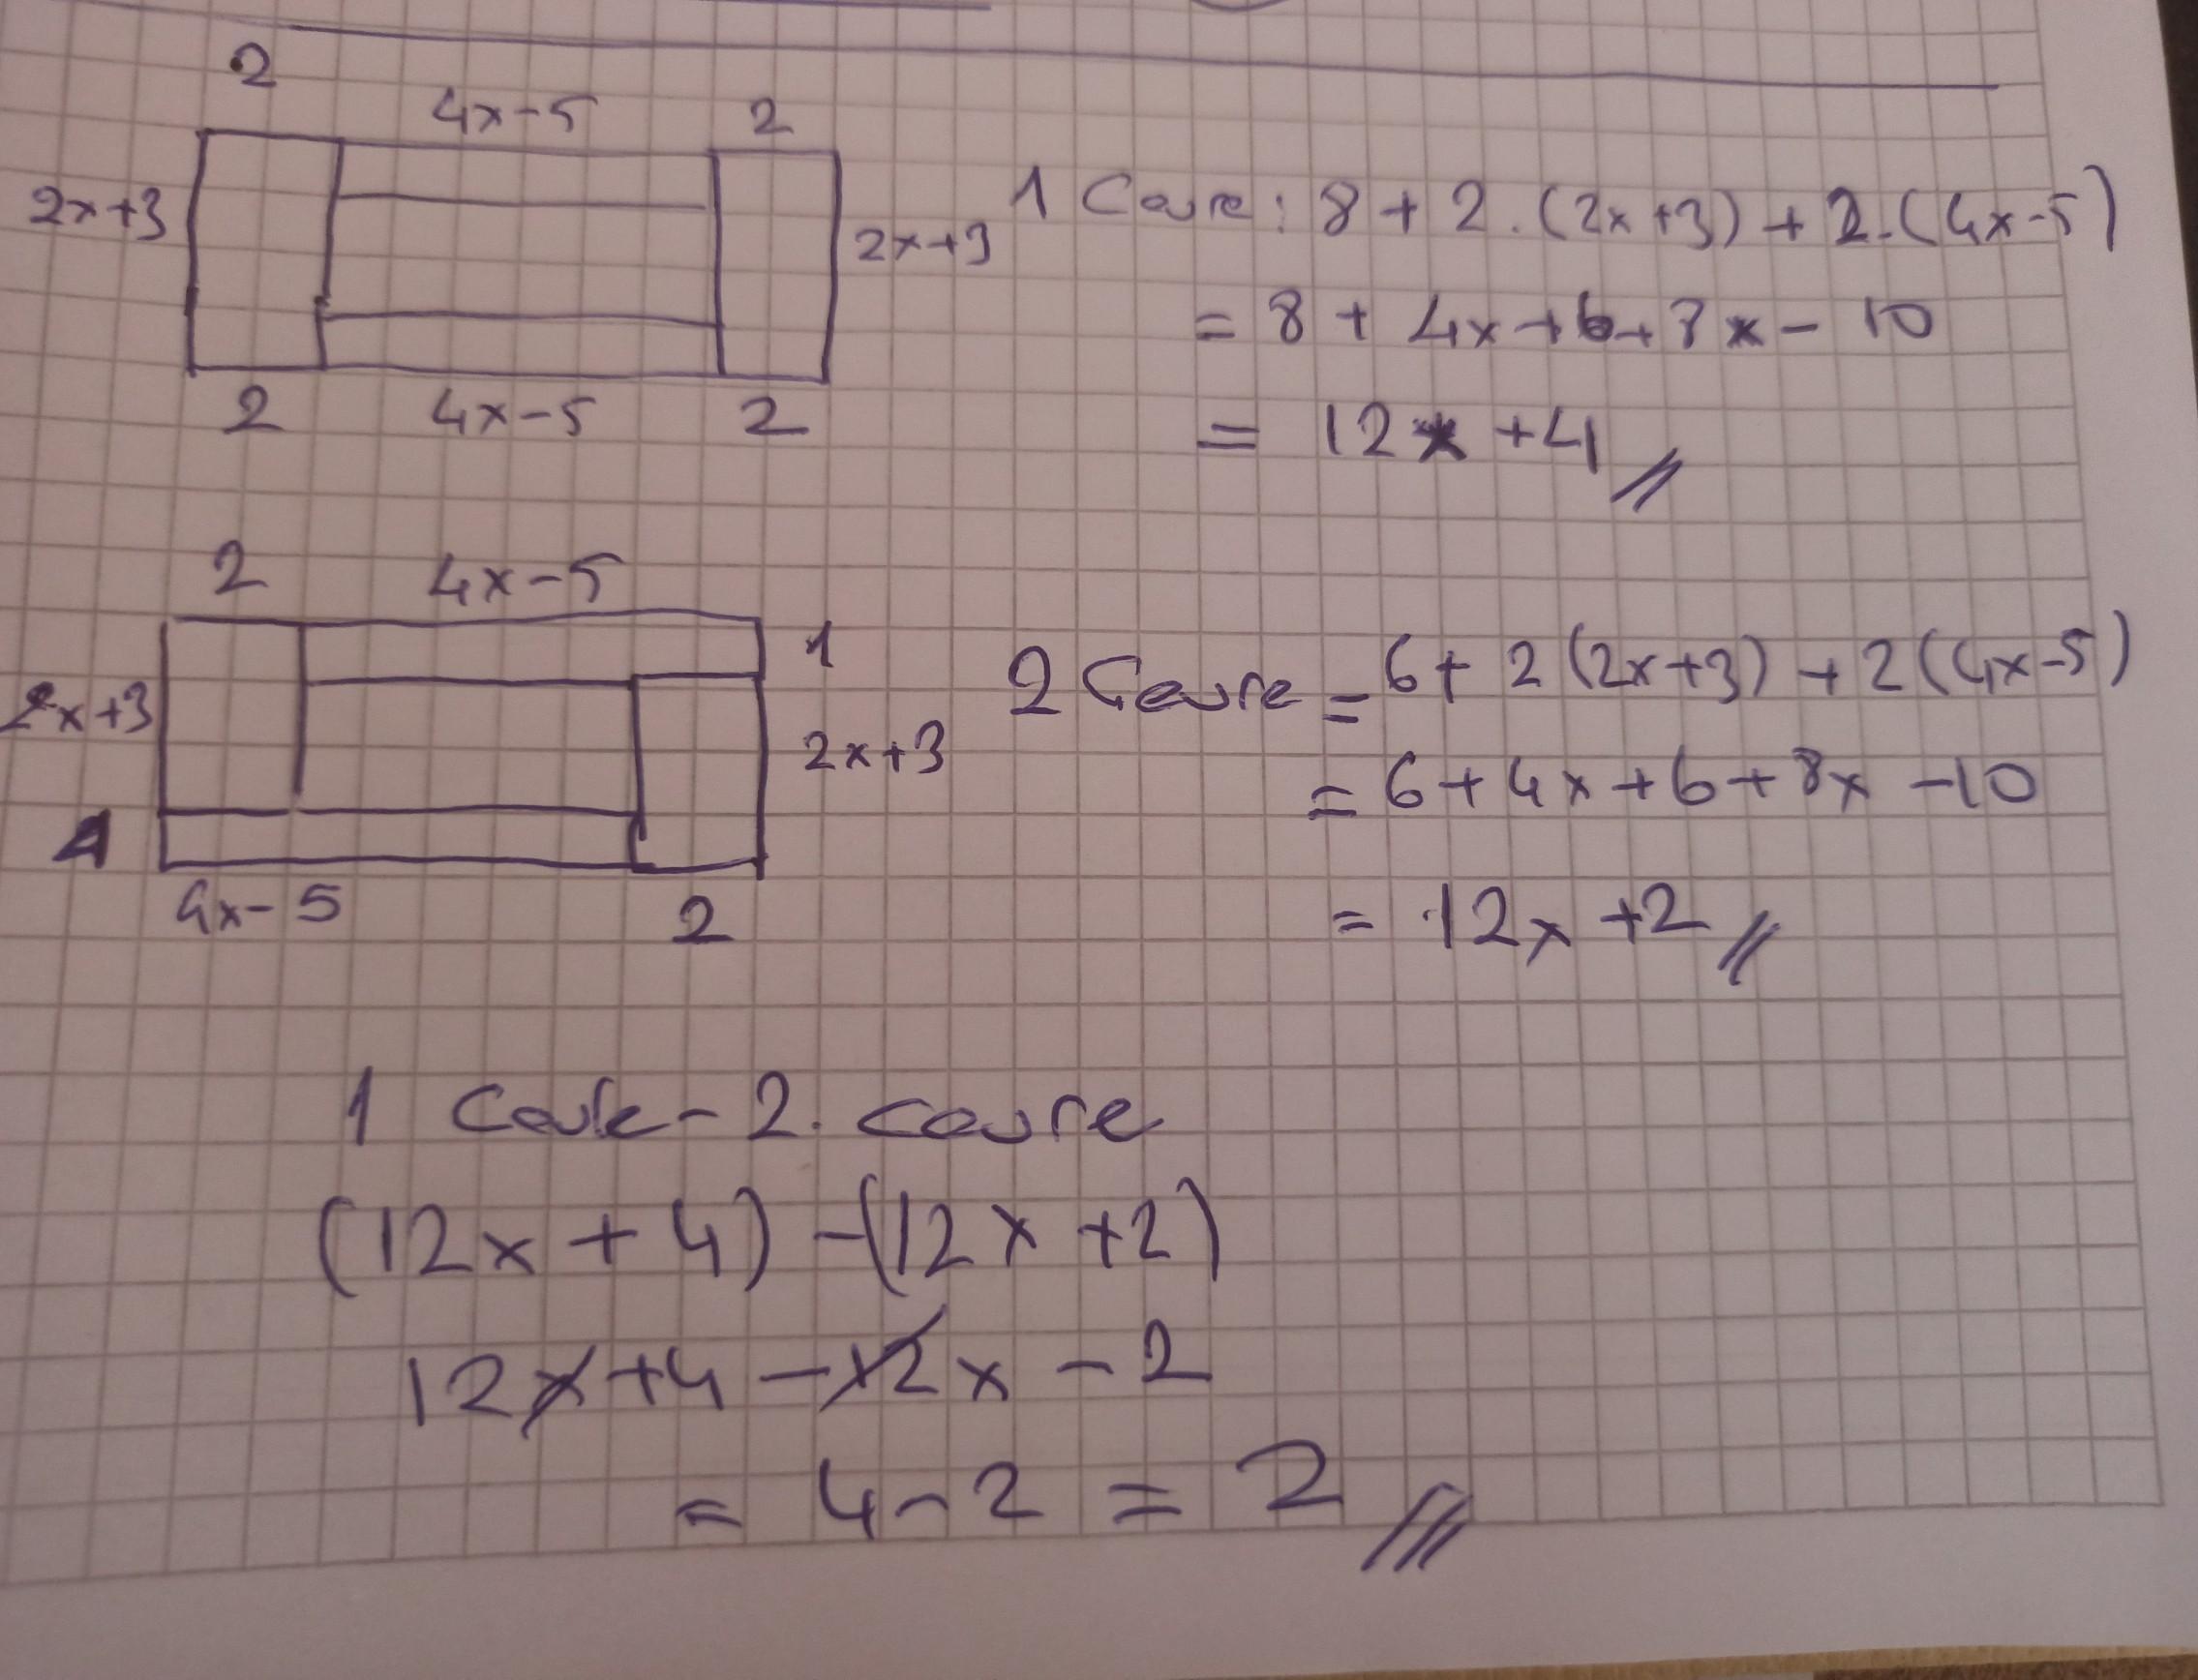 2
4x-5 2
2x+3 2x+3
2 4x-5 2
1 Çevre: 8+2.(2x+3)+2.(4x-5)
= 8+4x+6+8x-10
= 12x+4
2 4x-5
1
2x+3 2x+3
1
4x-5 2
2 Çevre = 6+2(2x+3)+2(4x-5)
= 6+4x+6+8x-10
= 12x+2
1 Çevre-2. çevre
(12x+4)-(12x+2)
12x+4-12x-2
= 4-2=2